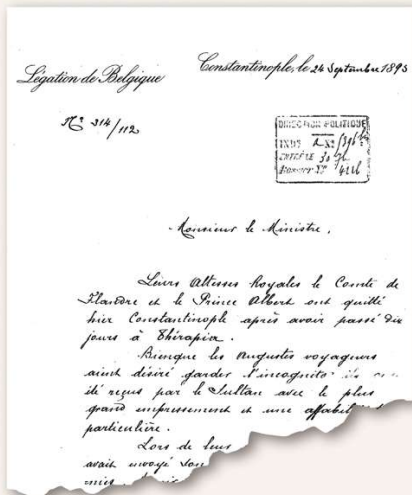 Légation de Belgique
Constantinople, le 24 Septembre 1895
Nº 314/112
DIRECTION POLITIQUE
Monsieur le Ministre,
Leurs Altesses Royales le Comte de
Flandre et le Prince Albert ont quitté
hier Constantinople après avoir passé dix
jours à Thérapia.
Bienque les Augustes voyageurs
aient désiré garder l'incognito ils
été reçus par le Sultan avec le plus
grand empressement et une
particulière.
Lors de leur
avait envoyé son